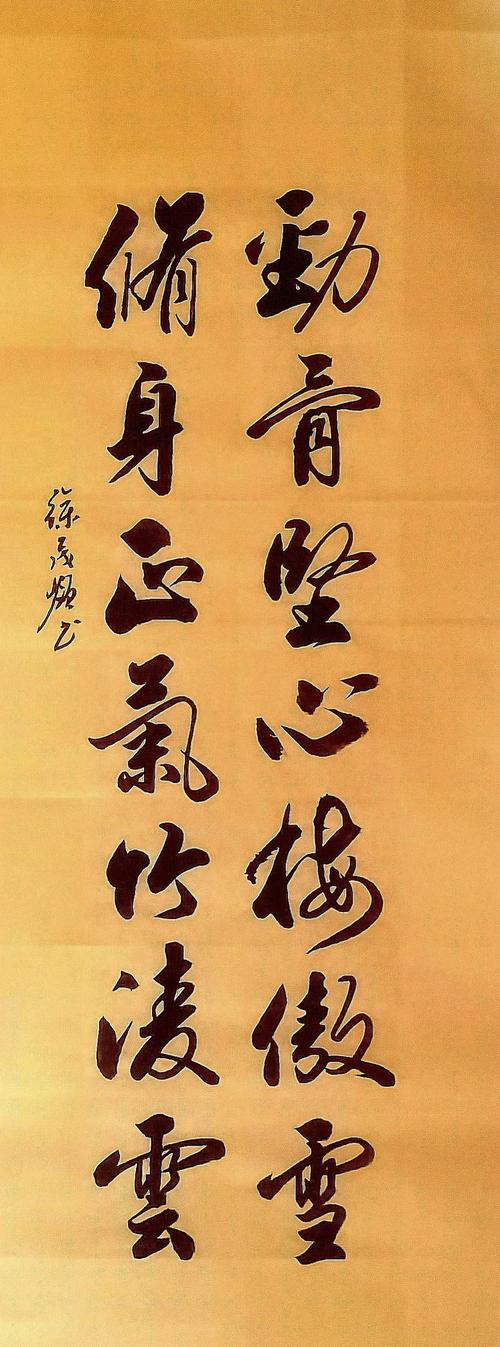 勁骨堅心梅傲雪
脩身正氣竹凌雲
徐茂